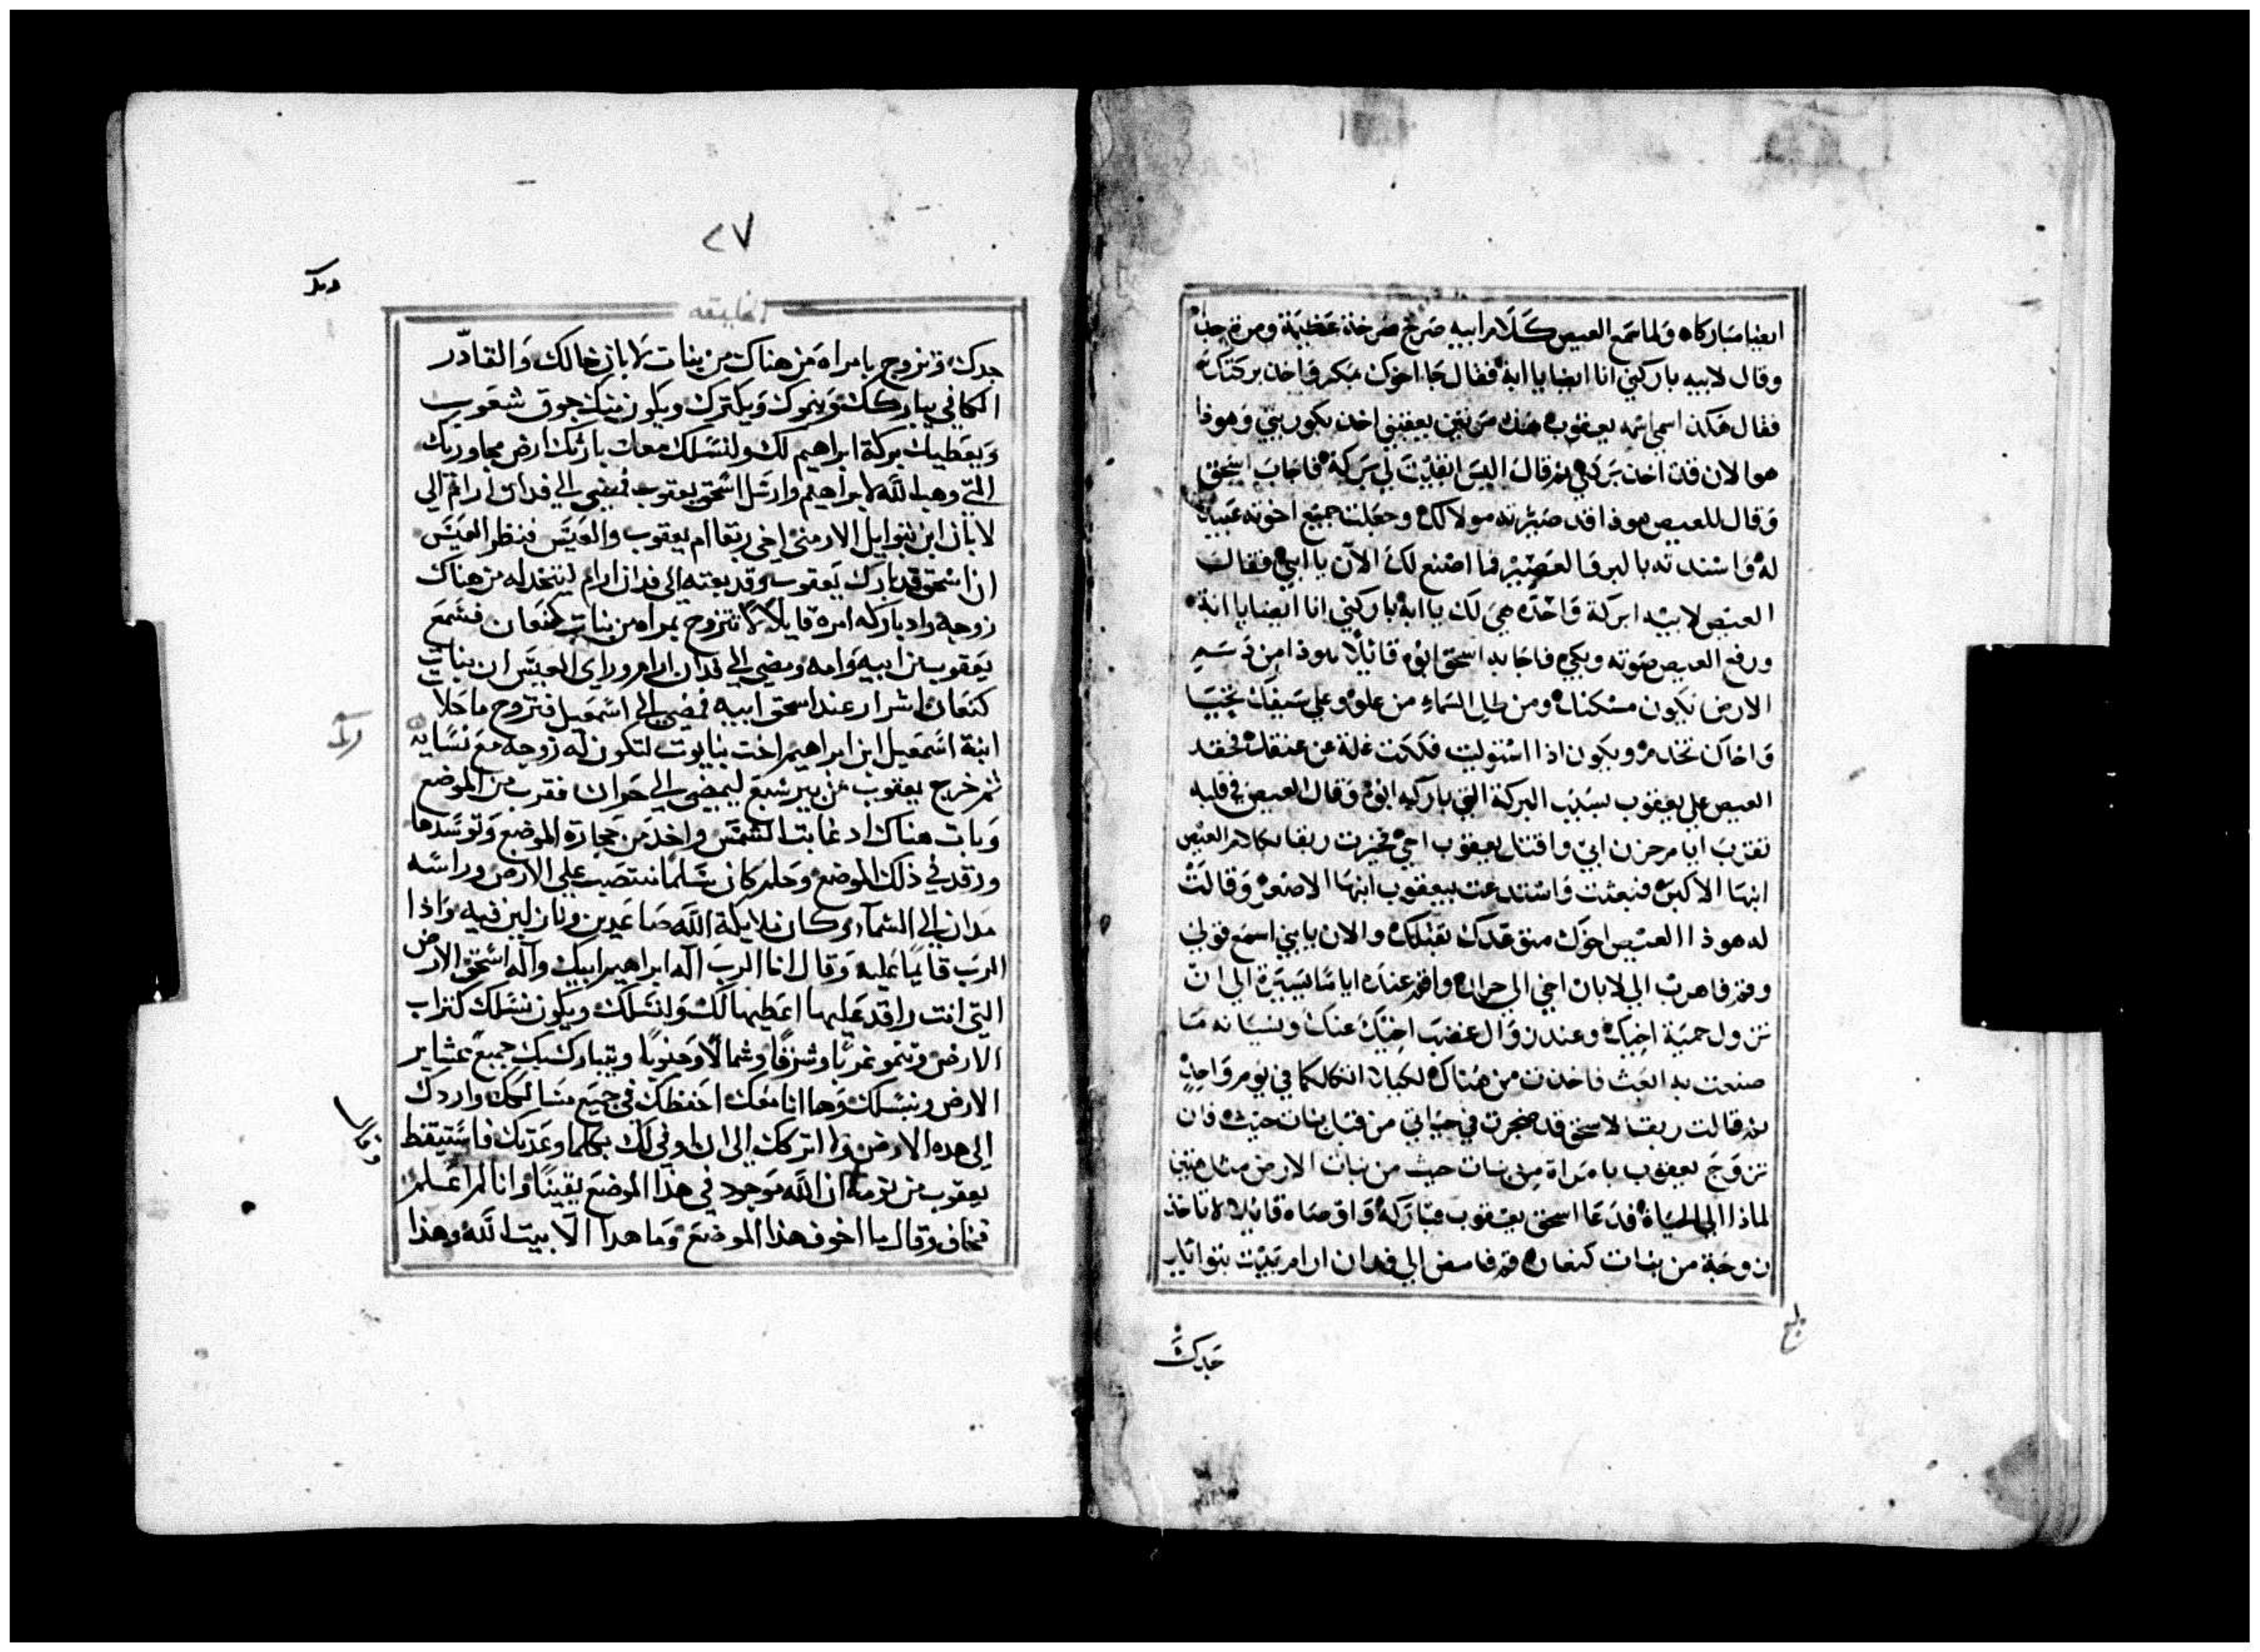 ايضا مباركاه ولما سمع العيص كلام ابيه صرخ صرخة عظيمة ومره جدا
وقال لابيه باركني انا ايضا يا ابة فقال جا اخوك بمكر فاخد بركتك
فقال هكذا اسمي اسمه يعقوب هذه مرتين يعقبني اخد بكوريتي وهوذا
هوا الان قد اخد بركتي ثم قال اليس ابقيت لي بركة فاجاب اسحق
وقال للعيص هوذا قد صيرته مولا لك وجعلت جميع اخوته عبيدا
له واسندته بالبر والعصير فما اصنع لك الآن يا ابني فقالت
العيص لابيه ابركة واحده هي لك يا ابة باركني انا ايضا يا ابة
ورفع العيص صوته وبكي فاجابه اسحق ابوه قائلا هوذا من دسم
الارض يكون مسكنك ومن طل السماء من علو وعلي سيفك تحيا
واخاك تخدم ويكون اذا استوليت فككت غلة عن عنقك فحقد
العيص علي يعقوب بسبب البركة التي باركه ابوه وقال العيص في قلبه
تقترب ايام حزن ابي واقتل يعقوب اخي فخبرت ربقا بكلام العيص
ابنها الاكبر فبعثت واستدعت بيعقوب ابنها الاصغر وقالت
له هوذا العيص اخوك متوعدك بقتلك والان يا بني اسمع قولي
وقم فاهرب الي لابان اخي الي حران واقم عنده اياما يسيرة الي ان
تزول حمية اخيك وعند زوال غضب اخيك عنك ونسيانه ما
صنعت به ابعث فاخدت من هناك لكيلا اثكلكما في يوم واحد
ثم قالت ربقا لاسحق قد ضجرت في حياتي من قبل بنات حيث فان
تزوج يعقوب بامراة من بنات حيث من بنات الارض مثل هتين
لماذا لي الحياة فدعا اسحق يعقوب فباركه واوصاه قائلا لا تاخد
زوجة من بنات كنعان قم فامض الي فدان ارام بيت بتوايل
بلغ
جدك
٢٧
جدك وتزوج بامراه من هناك من بنات لابان خالك والقادر
الكافي يباركك وينموك ويكترك ويكون منك جوق شعوب
ويعطيك بركة ابراهيم لك ولنسلك معك بارثك ارض مجاورتك
التي وهب الله لابراهيم وارسل اسحق يعقوب فمضي الي فدان ارام الي
لابان ابن بتوايل الارمني اخي ربقا ام يعقوب والعيس فنظر العيس
ان اسحق قد بارك يعقوب وقد بعته الي فدان ارام ليتخد له من هناك
زوجه واد باركه امره قايلا لا تتزوج بمراه من بنات كنعان فسمع
يعقوب من ابيه وامه ومضي الي فدان ارام وراي العيس ان بنات
كنعان اشرار عند اسحق ابيه فمضي الي اسمعيل فتزوج ماحلا
ابنة اسمعيل ابن ابراهيم اخت نبايوت لتكون له زوجه مع نسايه
ثم خرج يعقوب من بير شبع ليمضي الي حران فقرب من الموضع
وبات هناك اد غابت الشمس واخد من حجارة الموضع وتوسدها
ورقد في ذلك الموضع وحلم كان سلما منتصب علي الارض وراسه
مدان الي السماء وكان ملايكة الله صاعدين ونازلين فيه واذا
الرب قايما عليه وقال انا الرب اله ابراهيم ابيك واله اسحق الارض
التي انت راقد عليها اعطيها لك ولنسلك ويكون نسلك كتراب
الارض وتنمو غربا وشرقا وشمالا وجنوبا ويتبارك بك جميع عشاير
الارض وبنسلك وها انا معك احفظك في جميع مسالكك واردك
الي هده الارض ولا اتركك الي ان اوفي لك بكلما وعدتك فاستيقظ
يعقوب من نومه ان الله موجود في هذا الموضع يقينا وانا لم اعلم
فخاف وقال ما اخوف هذا الموضع وما هدا الا بيت الله وهذا